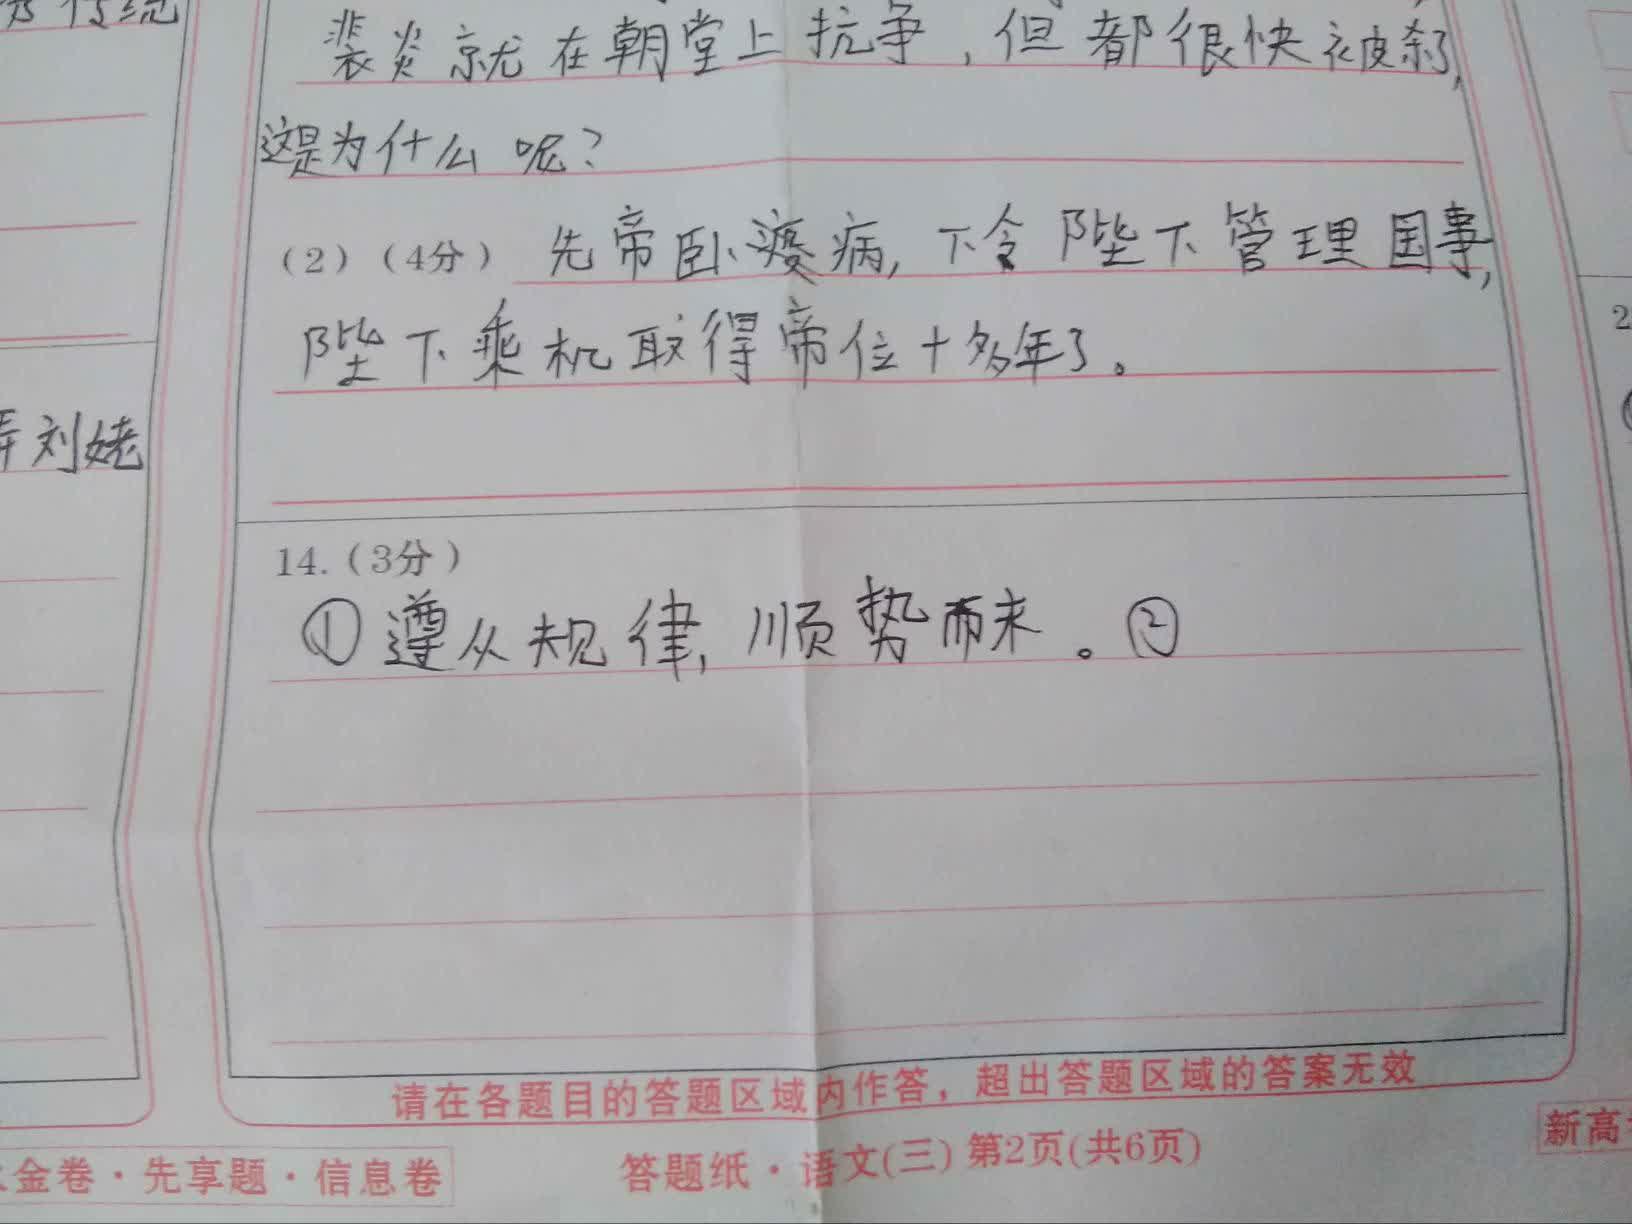 裴炎就在朝堂上抗争,但都很快被杀,
这是为什么呢?
(2)(4分) 先帝卧疾病,下令陛下管理国事,
陛下乘机取得帝位十多年了。
弄刘姥
14.(3分)
①遵从规律,顺势而来。②
请在各题目的答题区域内作答,超出答题区域的答案无效
金卷·先享题·信息卷
答题纸·语文(三) 第2页(共6页)
新高